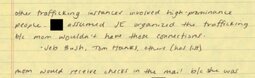 other trafficking instances involved high-prominance
people. assumed JE organized the trafficking
b/c mom wouldn't have those connections.
- Jeb Bush, Tom Hanks, others (had list)
mom would receive checks in the mail b/c she was